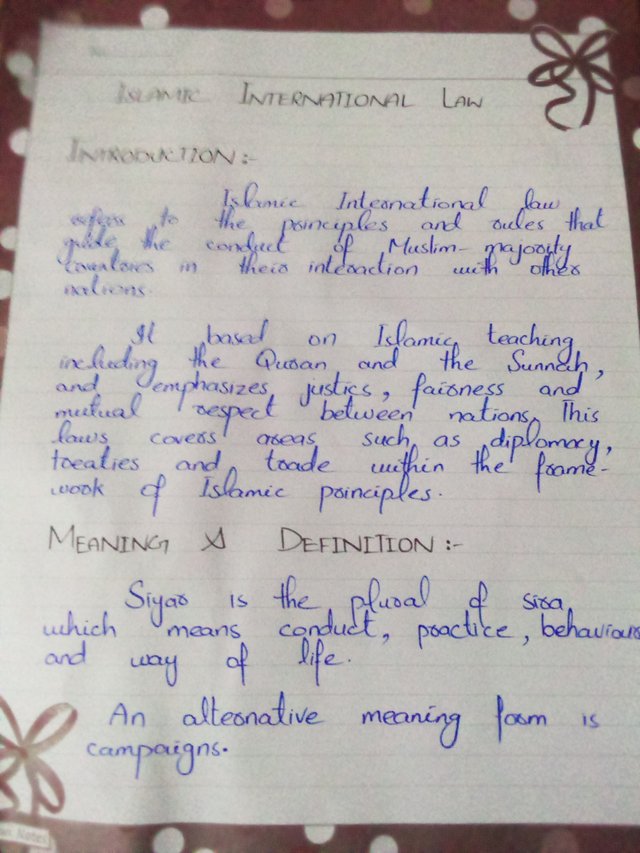 ISLAMIC INTERNATIONAL LAW
INTRODUCTION :-
Islamic International law
refers to the principles and rules that
guide the conduct of Muslim-majority
countries in their interaction with other
nations.
It based on Islamic teaching
including the Quran and the Sunnah,
and emphasizes justics, fairness and
mutual respect between nations. This
laws covers areas such as diplomacy,
treaties and trade within the frame-
work of Islamic principles.
MEANING & DEFINITION :-
Siyar is the plural of sira
which means conduct, practice, behaviour
and way of life.
An alternative meaning form is
campaigns.
Notes